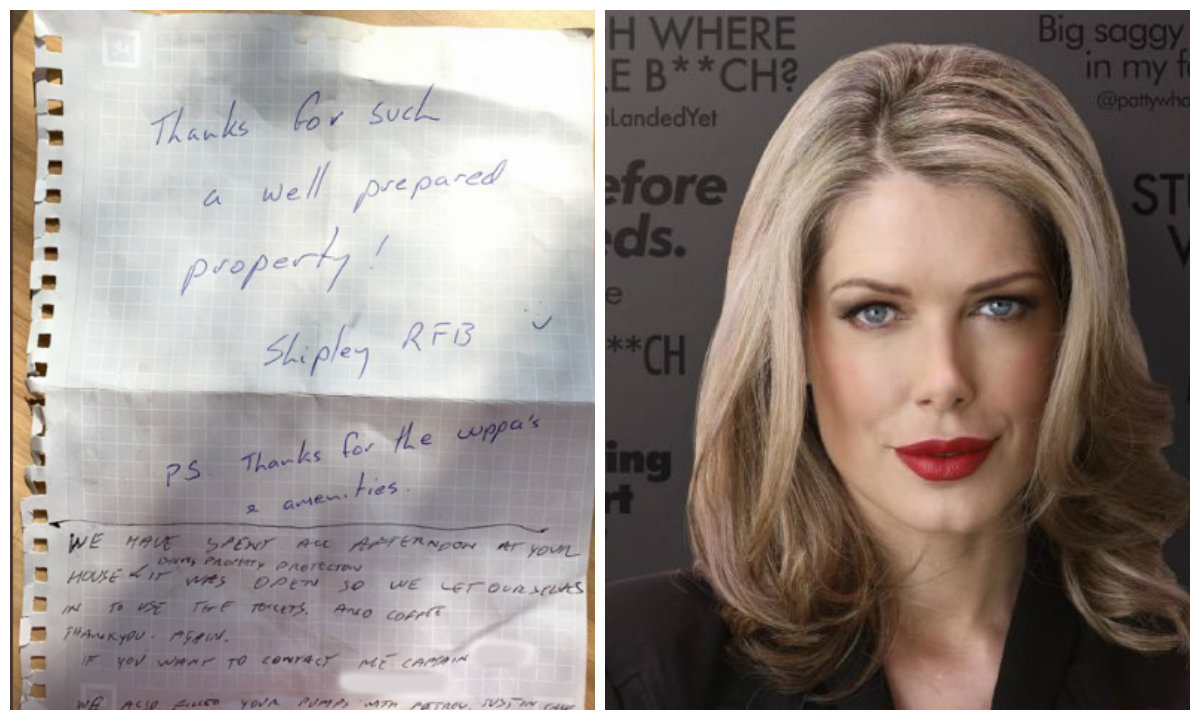 Thanks for such
a well prepared
property!
Shipley RFB
PS. Thanks for the cuppa's
& amenities.
WE HAVE SPENT ALL AFTERNOON AT YOUR
DOING PROPERTY PROTECTION
HOUSE & IT WAS OPEN SO WE LET OURSELVES
IN TO USE THE TOILETS. AND COFFEE
THANKYOU. AGAIN.
IF YOU WANT TO CONTACT ME CAPTAIN
WE ALSO FILLED YOUR PUMPS WITH PETROL JUST IN CASE
H WHERE
E B**CH?
eLandedYet
efore
eds.
e
**CH
ing
rt
Big saggy
in my f
@pattywho
STU
V